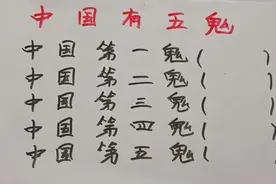 中国有五鬼
中国第一鬼(      )
中国第二鬼(      )
中国第三鬼(      )
中国第四鬼(      )
中国第五鬼(      )